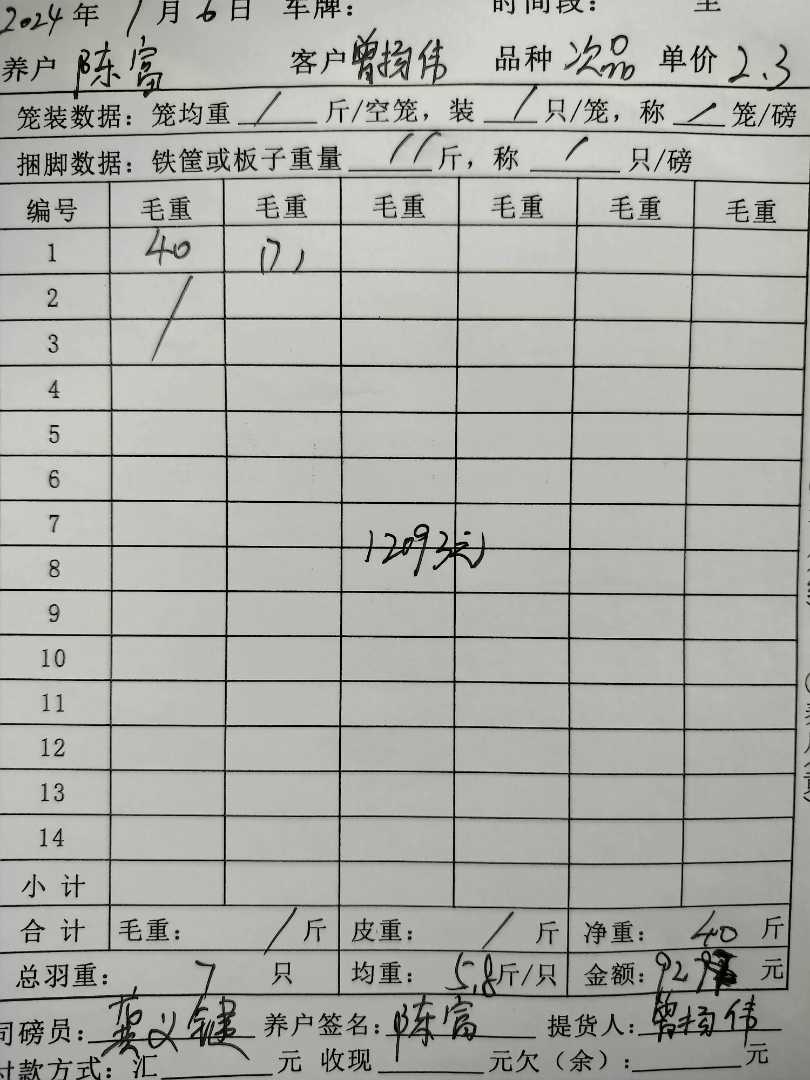 2024年1月6日 车牌: 时间段: 至
养户 陈富 客户 曾扬伟 品种 次品 单价 2.3
笼装数据: 笼均重 / 斤/空笼, 装 / 只/笼, 称 / 笼/磅
捆脚数据: 铁筐或板子重量 // 斤, 称 / 只/磅
编号 毛重 毛重 毛重 毛重 毛重 毛重
1 40 (7)
2 /
3
4
5
6
7
1209元
8
9
10
11
12
13
14
小计
合计 毛重: / 斤 皮重: / 斤 净重: 40 斤
总羽重: 7 只 均重: 5.8 斤/只 金额: 92 元
司磅员: 黄义键 养户签名: 陈富 提货人: 曾扬伟
付款方式: 汇 元 收现 元 欠(余): 元